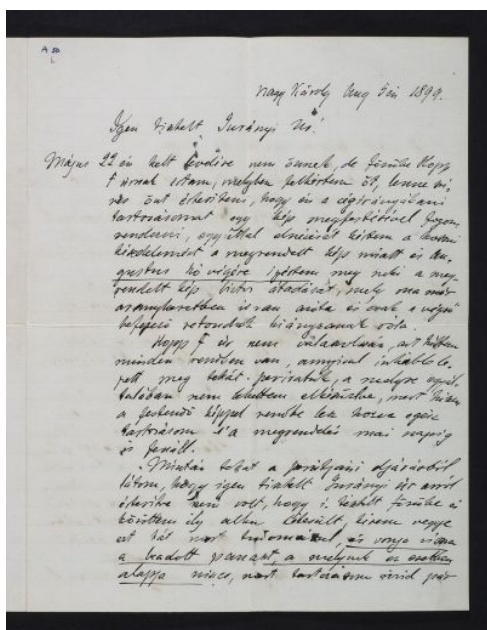 A 50
Nagy Károly Aug 5én 1899.
Igen tisztelt Iurányi Úr!
Május 22 én kelt levelére nem önnek, de Kopp
F úrnak irtam, melyben felkértem őt, lenne szi-
ves önt értesíteni, hogy én a czég irányábani
tartozásomat egy kép megfestésével fogom
rendezni, egyúttal elnézését kértem a
késedelmért a megrendelt kép miatt és Au-
gustus hó végére igértem meg neki a meg-
rendelt kép átadását, mely ma már
aranykeretben és csak a végső
befejező retouchok hiányzanak róla.
Kopp F úr nem válaszolván, azt hittem
minden rendben van, annyival inkább le-
pett meg tehát , a melyre egyál-
talában nem lehettem elkészülve, mert hiszen
a festendő képpel rendbe lesz hozva egész
tartozásom s a megrendelés mai napig
is fenáll.
Miután tehát a eljárásból
látom, hogy igen tisztelt Iurányi úr arról
értesítve nem volt, hogy
közöttem ily alku létesült, kérem vegye
ezt hát most tudomásul, és vonja vissza
a beadott panaszt, a melynek ez esetben
alapja nincs, mert tartozásom